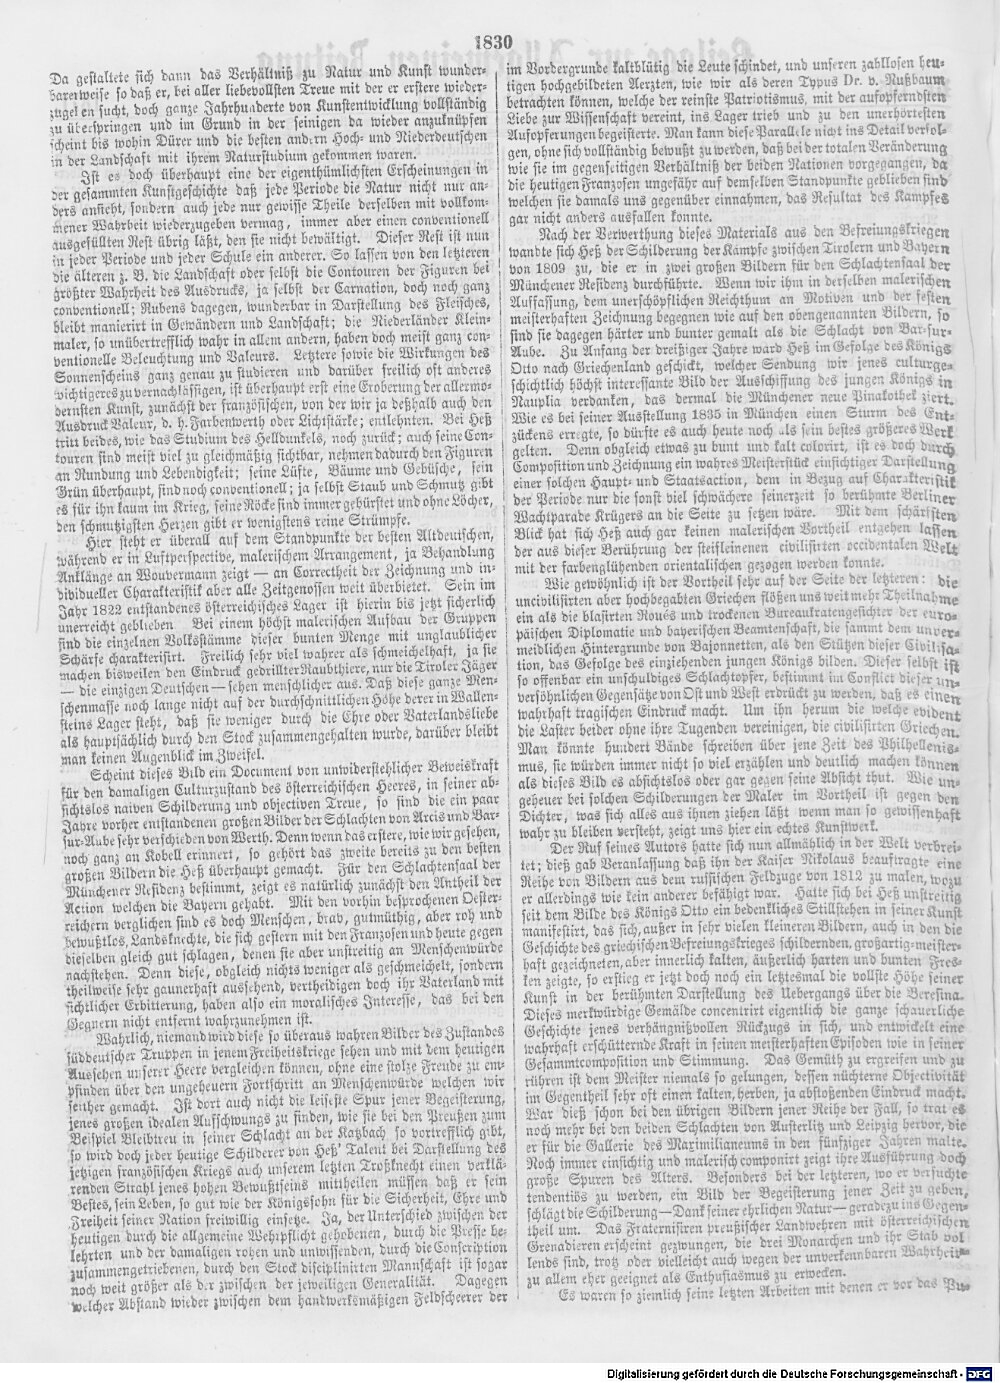 1830
Da gestaltete sich dann das Verhältniß zu Natur und Kunst wunder-
barerweise so daß er, bei aller liebevollsten Treue mit der er erstere wieder-
zugeben sucht, doch ganze Jahrhunderte von Kunstentwicklung vollständig
zu überspringen und im Grund in der seinigen da wieder anzuknüpfen
scheint bis wohin Dürer und die besten andern Hoch- und Niederdeutschen
in der Landschaft mit ihrem Naturstudium gekommen waren.
Ist es doch überhaupt eine der eigenthümlichsten Erscheinungen in
der gesammten Kunstgeschichte daß jede Periode die Natur nicht nur an-
ders ansieht, sondern auch jede nur gewisse Theile derselben mit vollkom-
mener Wahrheit wiederzugeben vermag, immer aber einen conventionell
ausgefüllten Rest übrig läßt, den sie nicht bewältigt. Dieser Rest ist nun
in jeder Periode und jeder Schule ein anderer. So lassen von den letzteren
die älteren z. B. die Landschaft oder selbst die Contouren der Figuren bei
größter Wahrheit des Ausdrucks, ja selbst der Carnation, doch noch ganz
conventionell; Rubens dagegen, wunderbar in Darstellung des Fleisches,
bleibt manierirt in Gewändern und Landschaft; die Niederländer Klein-
maler, so unübertrefflich wahr in allem andern, haben doch meist ganz con-
ventionelle Beleuchtung und Valeurs. Letztere sowie die Wirkungen des
Sonnenscheins ganz genau zu studieren und darüber freilich oft anderes
wichtigeres zu vernachlässigen, ist überhaupt erst eine Eroberung der allermo-
dernsten Kunst, zunächst der französischen, von der wir ja deßhalb auch den
Ausdruck Valeur, d. h. Farbenwerth oder Lichtstärke; entlehnten. Bei Heß
tritt beides, wie das Studium des Helldunkels, noch zurück; auch seine Con-
touren sind meist viel zu gleichmäßig sichtbar, nehmen dadurch den Figuren
an Rundung und Lebendigkeit; seine Lüfte, Bäume und Gebüsche, sein
Grün überhaupt, sind noch conventionell; ja selbst Staub und Schmutz gibt
es für ihn kaum im Krieg, seine Röcke sind immer gebürstet und ohne Löcher,
den schmutzigsten Herzen gibt er wenigstens reine Strümpfe.
Hier steht er überall auf dem Standpunkte der besten Altdeutschen,
während er in Luftperspective, malerischem Arrangement, ja Behandlung
Anklänge an Wouvermann zeigt — an Correctheit der Zeichnung und in-
dividueller Charakteristik aber alle Zeitgenossen weit überbietet. Sein im
Jahr 1822 entstandenes österreichisches Lager ist hierin bis jetzt sicherlich
unerreicht geblieben Bei einem höchst malerischen Aufbau der Gruppen
sind die einzelnen Volksstämme dieser bunten Menge mit unglaublicher
Schärfe charakterisirt. Freilich sehr viel wahrer als schmeichelhaft, ja sie
machen bisweilen den Eindruck gedrillter Raubthiere, nur die Tiroler Jäger
— die einzigen Deutschen — sehen menschlicher aus. Daß diese ganze Men-
schenmasse noch lange nicht auf der durchschnittlichen Höhe derer in Wallen-
steins Lager steht, daß sie weniger durch die Ehre oder Vaterlandsliebe
als hauptsächlich durch den Stock zusammengehalten wurde, darüber bleibt
man keinen Augenblick im Zweifel.
Scheint dieses Bild ein Document von unwiderstehlicher Beweiskraft
für den damaligen Culturzustand des österreichischen Heeres, in seiner ab-
sichtslos naiven Schilderung und objectiven Treue, so sind die ein paar
Jahre vorher entstandenen großen Bilder der Schlachten von Arcis und Bar-
sur-Aube sehr verschieden von Werth. Denn wenn das erstere, wie wir gesehen,
noch ganz an Kobell erinnert, so gehört das zweite bereits zu den besten
großen Bildern die Heß überhaupt gemacht. Für den Schlachtensaal der
Münchener Residenz bestimmt, zeigt es natürlich zunächst den Antheil der
Action welchen die Bayern gehabt. Mit den vorhin besprochenen Oester-
reichern verglichen sind es doch Menschen, brav, gutmüthig, aber roh und
bewußtlos, Landsknechte, die sich gestern mit den Franzosen und heute gegen
dieselben gleich gut schlagen, denen sie aber unstreitig an Menschenwürde
nachstehen. Denn diese, obgleich nichts weniger als geschmeichelt, sondern
theilweise sehr gaunerhaft aussehend, vertheidigen doch ihr Vaterland mit
sichtlicher Erbitterung, haben also ein moralisches Interesse, das bei den
Gegnern nicht entfernt wahrzunehmen ist.
Wahrlich, niemand wird diese so überaus wahren Bilder des Zustandes
süddeutscher Truppen in jenem Freiheitskriege sehen und mit dem heutigen
Aussehen unserer Heere vergleichen können, ohne eine stolze Freude zu em-
pfinden über den ungeheuern Fortschritt an Menschenwürde welchen wir
seither gemacht. Ist dort auch nicht die leiseste Spur jener Begeisterung,
jenes großen idealen Aufschwungs zu finden, wie sie bei den Preußen zum
Beispiel Bleibtreu in seiner Schlacht an der Katzbach so vortrefflich gibt,
so wird doch jeder heutige Schilderer von Heß' Talent bei Darstellung des
jetzigen französischen Kriegs auch unserem letzten Troßknecht einen verklä-
renden Strahl jenes hohen Bewußtseins mittheilen müssen daß er sein
Bestes, sein Leben, so gut wie der Königssohn für die Sicherheit, Ehre und
Freiheit seiner Nation freiwillig einsetze. Ja, der Unterschied zwischen der
heutigen durch die allgemeine Wehrpflicht gehobenen, durch die Presse be-
lehrten und der damaligen rohen und unwissenden, durch die Conscription
zusammengetriebenen, durch den Stock disciplinirten Mannschaft ist sogar
noch weit größer als der zwischen der jeweiligen Generalität. Dagegen
welcher Abstand wieder zwischen dem handwerksmäßigen Feldscheerer der
im Vordergrunde kaltblütig die Leute schindet, und unseren zahllosen heu-
tigen hochgebildeten Aerzten, wie wir als deren Typus Dr. v. Nußbaum
betrachten können, welche der reinste Patriotismus, mit der aufopferndsten
Liebe zur Wissenschaft vereint, ins Lager trieb und zu den unerhörtesten
Aufopferungen begeisterte. Man kann diese Parallele nicht ins Detail verfol-
gen, ohne sich vollständig bewußt zu werden, daß bei der totalen Veränderung
wie sie im gegenseitigen Verhältniß der beiden Nationen vorgegangen, da
die heutigen Franzosen ungefähr auf demselben Standpunkte geblieben sind
welchen sie damals uns gegenüber einnahmen, das Resultat des Kampfes
gar nicht anders ausfallen konnte.
Nach der Verwerthung dieses Materials aus den Befreiungskriegen
wandte sich Heß der Schilderung der Kämpfe zwischen Tirolern und Bayern
von 1809 zu, die er in zwei großen Bildern für den Schlachtensaal der
Münchener Residenz durchführte. Wenn wir ihm in derselben malerischen
Auffassung, dem unerschöpflichen Reichthum an Motiven und der festen
meisterhaften Zeichnung begegnen wie auf den obengenannten Bildern, so
sind sie dagegen härter und bunter gemalt als die Schlacht von Bar-sur-
Aube. Zu Anfang der dreißiger Jahre ward Heß im Gefolge des Königs
Otto nach Griechenland geschickt, welcher Sendung wir jenes culturge-
schichtlich höchst interessante Bild der Ausschiffung des jungen Königs in
Nauplia verdanken, das dermal die Münchener neue Pinakothek ziert.
Wie es bei seiner Ausstellung 1835 in München einen Sturm des Ent-
zückens erregte, so dürfte es auch heute noch als sein bestes größeres Werk
gelten. Denn obgleich etwas zu bunt und kalt colorirt, ist es doch durch
Composition und Zeichnung ein wahres Meisterstück einsichtiger Darstellung
einer solchen Haupt- und Staatsaction, dem in Bezug auf Charakteristik
der Periode nur die sonst viel schwächere seinerzeit so berühmte Berliner
Wachtparade Krügers an die Seite zu setzen wäre. Mit dem schärfsten
Blick hat sich Heß auch gar keinen malerischen Vortheil entgehen lassen
der aus dieser Berührung der steifleinenen civilisirten occidentalen Welt
mit der farbenglühenden orientalischen gezogen werden konnte.
Wie gewöhnlich ist der Vortheil sehr auf der Seite der letzteren: die
uncivilisirten aber hochbegabten Griechen flößen uns weit mehr Theilnahme
ein als die blasirten Roués und trockenen Bureaukratengesichter der euro-
päischen Diplomatie und bayerischen Beamtenschaft, die sammt dem unver-
meidlichen Hintergrunde von Bajonnetten, als den Stützen dieser Civilisa-
tion, das Gefolge des einziehenden jungen Königs bilden. Dieser selbst ist
so offenbar ein unschuldiges Schlachtopfer, bestimmt im Conflict dieser un-
versöhnlichen Gegensätze von Ost und West erdrückt zu werden, daß es einen
wahrhaft tragischen Eindruck macht. Um ihn herum die welche evident
die Laster beider ohne ihre Tugenden vereinigen, die civilisirten Griechen.
Man könnte hundert Bände schreiben über jene Zeit des Philhellenis-
mus, sie würden immer nicht so viel erzählen und deutlich machen können
als dieses Bild es absichtslos oder gar gegen seine Absicht thut. Wie un-
geheuer bei solchen Schilderungen der Maler im Vortheil ist gegen den
Dichter, was sich alles aus ihnen ziehen läßt wenn man so gewissenhaft
wahr zu bleiben versteht, zeigt uns hier ein echtes Kunstwerk.
Der Ruf seines Autors hatte sich nun allmählich in der Welt verbrei-
tet; dieß gab Veranlassung daß ihn der Kaiser Nikolaus beauftragte eine
Reihe von Bildern aus dem russischen Feldzuge von 1812 zu malen, wozu
er allerdings wie kein anderer befähigt war. Hatte sich bei Heß unstreitig
seit dem Bilde des Königs Otto ein bedenkliches Stillstehen in seiner Kunst
manifestirt, das sich, außer in sehr vielen kleineren Bildern, auch in den die
Geschichte des griechischen Befreiungskrieges schildernden, großartig-meister-
haft gezeichneten, aber innerlich kalten, äußerlich harten und bunten Fres-
ken zeigte, so erstieg er jetzt doch noch ein letztesmal die vollste Höhe seiner
Kunst in der berühmten Darstellung des Uebergangs über die Beresina.
Dieses merkwürdige Gemälde concentrirt eigentlich die ganze schauerliche
Geschichte jenes verhängnißvollen Rückzugs in sich, und entwickelt eine
wahrhaft erschütternde Kraft in seinen meisterhaften Episoden wie in seiner
Gesammtcomposition und Stimmung. Das Gemüth zu ergreifen und zu
rühren ist dem Meister niemals so gelungen, dessen nüchterne Objectivität
im Gegentheil sehr oft einen kalten, herben, ja abstoßenden Eindruck macht.
War dieß schon bei den übrigen Bildern jener Reihe der Fall, so trat es
noch mehr bei den beiden Schlachten von Austerlitz und Leipzig hervor, die
er für die Gallerie des Maximilianeums in den fünfziger Jahren malte.
Noch immer einsichtig und malerisch componirt zeigt ihre Ausführung doch
große Spuren des Alters. Besonders bei der letzteren, wo er versuchte
tendentiös zu werden, ein Bild der Begeisterung jener Zeit zu geben,
schlägt die Schilderung — Dank seiner ehrlichen Natur — geradezu ins Gegen-
theil um. Das Fraternisiren preußischer Landwehren mit österreichischen
Grenadieren erscheint gezwungen, die drei Monarchen und ihr Stab vol
lends sind, trotz oder vielleicht auch wegen der unverkennbaren Wahrheit-
zu allem eher geeignet als Enthusiasmus zu erwecken.
Es waren so ziemlich seine letzten Arbeiten mit denen er vor das Pu-
Digitalisierung gefördert durch die Deutsche Forschungsgemeinschaft - DFG